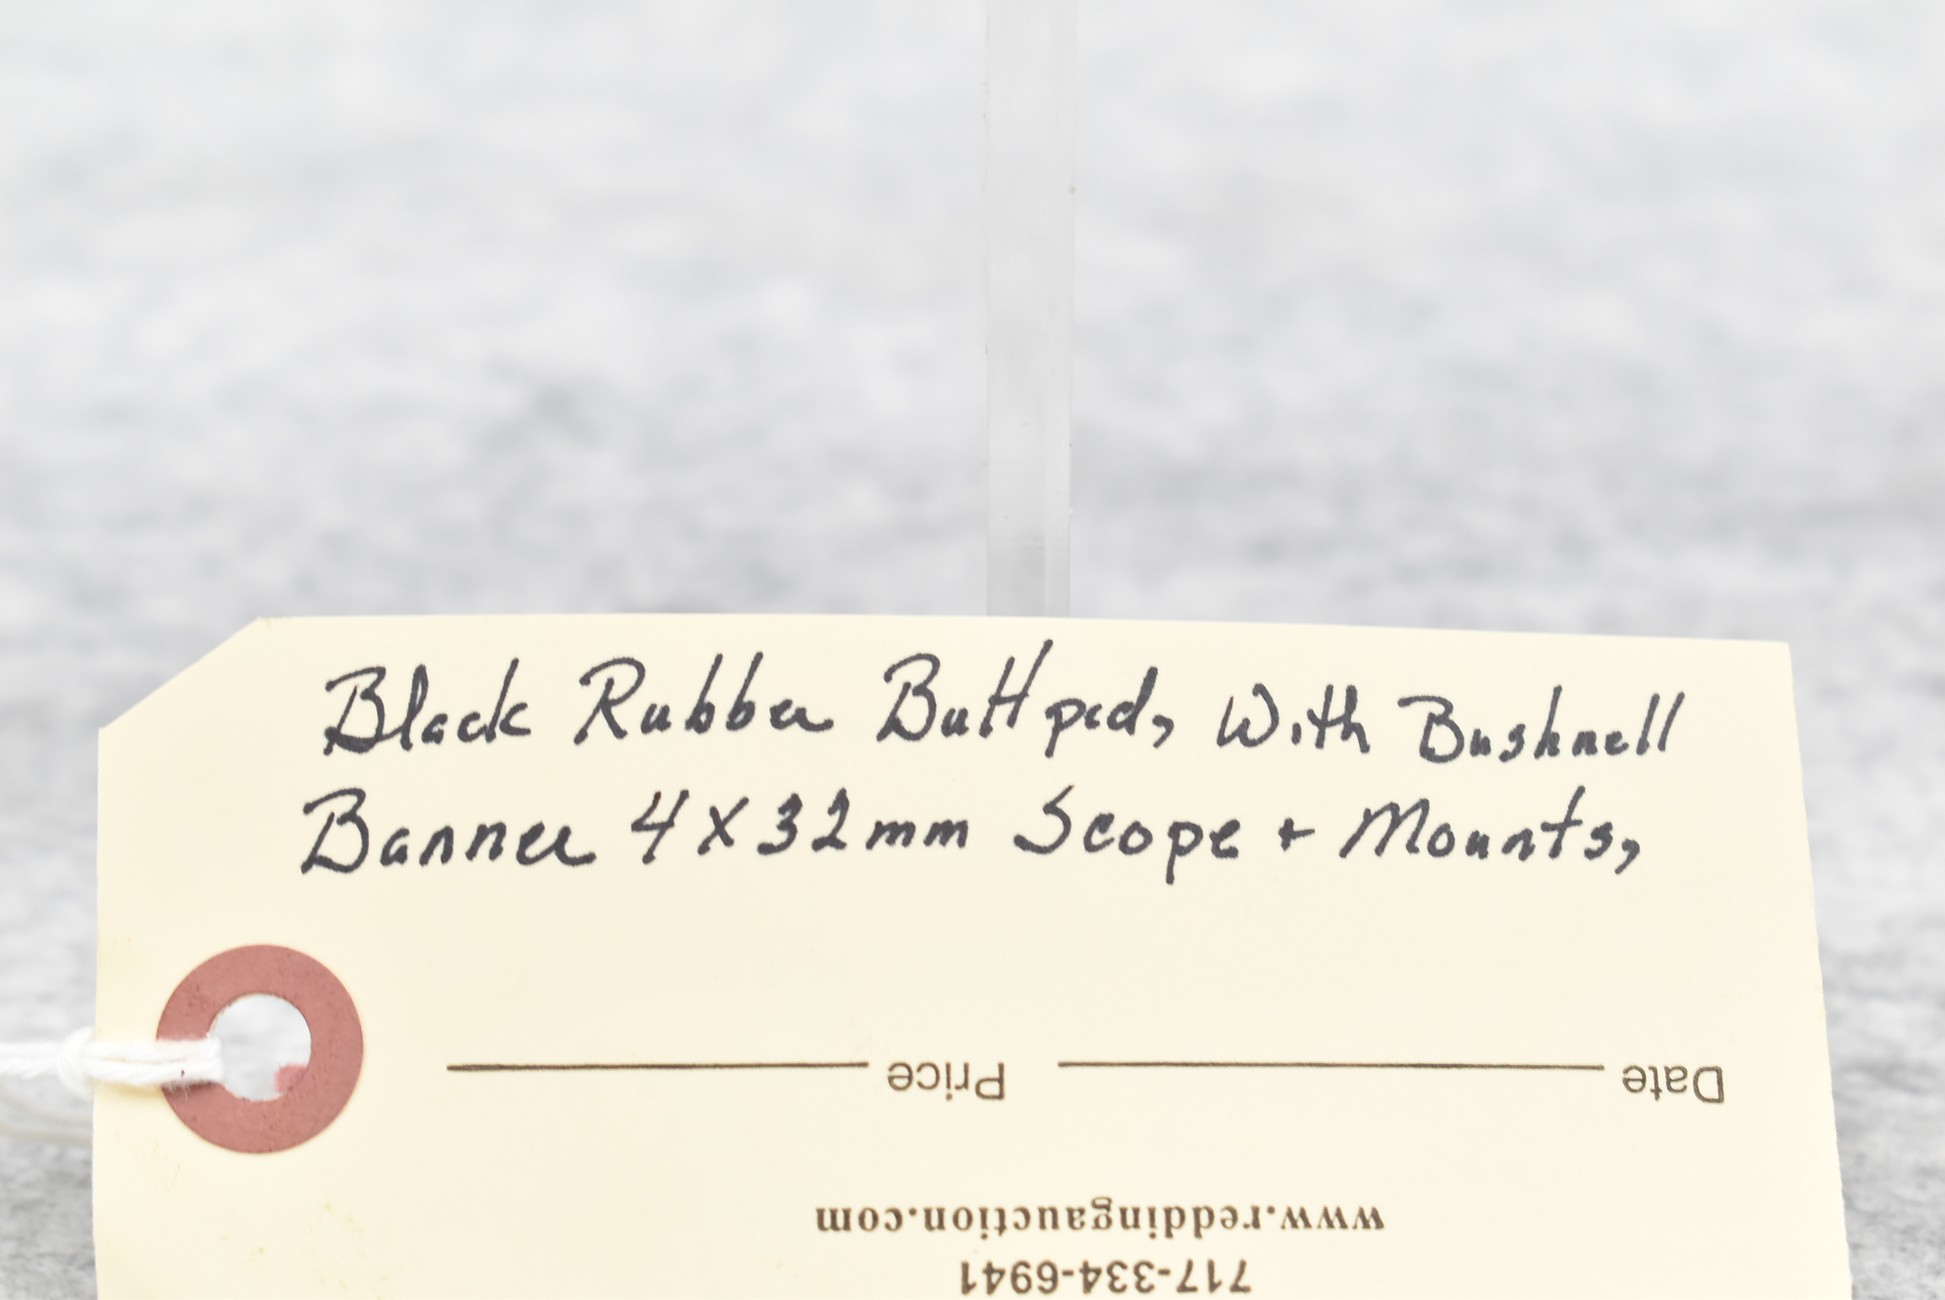 Black Rubber Buttpad, With Bushnell
Banner 4x32mm Scope + Mounts,
Date Price
www.reddingauction.com
717-334-6941